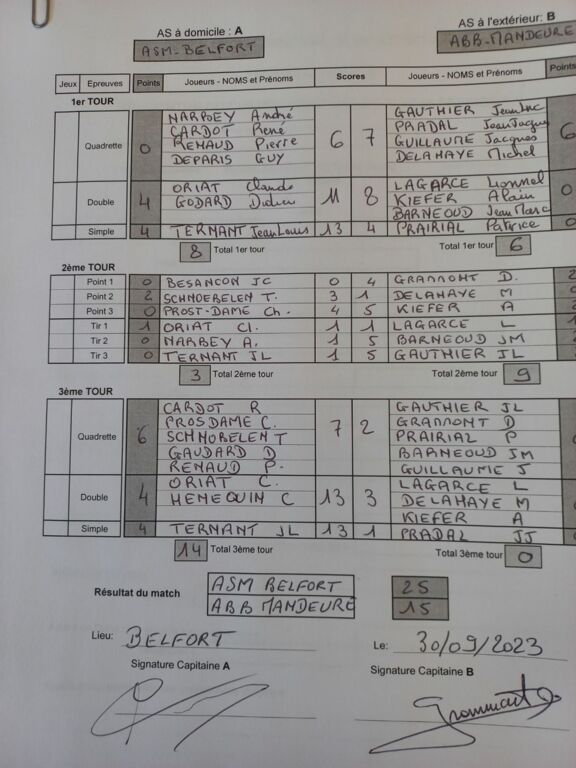 AS à domicile : A
AS à l'extérieur: B
ASM-BELFORT
ABB-MANDEURE
Jeux Epreuves Points Joueurs - NOMS et Prénoms Scores Joueurs - NOMS et Prénoms Points
1er TOUR
NARBEY André GAUTHIER Jean Luc
CARDOT René PRADAL Jean Jacques
Quadrette 0 RENAUD Pierre 6 7 GUILLAUME Jacques 6
DEPARIS GUY DELAHAYE Michel
ORIAT Claude LAGARCE Lionnel
Double 4 GODARD Didier 11 8 KIEFER Alain 0
BARNEOUD Jean Marc
Simple 4 TERNANT Jean Louis 13 4 PRAIRIAL Patrice 0
8 Total 1er tour Total 1er tour 6
2ème TOUR
Point 1 0 BESANCON JC 0 4 GRAMMONT D. 2
Point 2 2 SCHNOEBELEN T. 3 1 DELAHAYE M
Point 3 0 PROST-DAME Ch. 4 5 KIEFER A
Tir 1 1 ORIAT Cl. 1 1 LAGARCE L
Tir 2 0 NARBEY A. 1 5 BARNEOUD JM
Tir 3 0 TERNANT JL 1 5 GAUTHIER JL
3 Total 2ème tour Total 2ème tour 9
3ème TOUR
CARDOT R GAUTHIER JL
PROSDAME C. GRAMMONT D
Quadrette 6 SCHNOBELEN T 7 2 PRAIRIAL P
GAUDARD D BARNEOUD JM
RENAUD P. GUILLAUME J
ORIAT C. LAGARCE L
Double 4 HENEQUIN C 13 3 DELAHAYE M
KIEFER A
Simple 4 TERNANT JL 13 1 PRADAL JJ
14 Total 3ème tour Total 3ème tour 0
Résultat du match ASM BELFORT 25
ABB MANDEURE 15
Lieu: BELFORT Le: 30/09/2023
Signature Capitaine A Signature Capitaine B